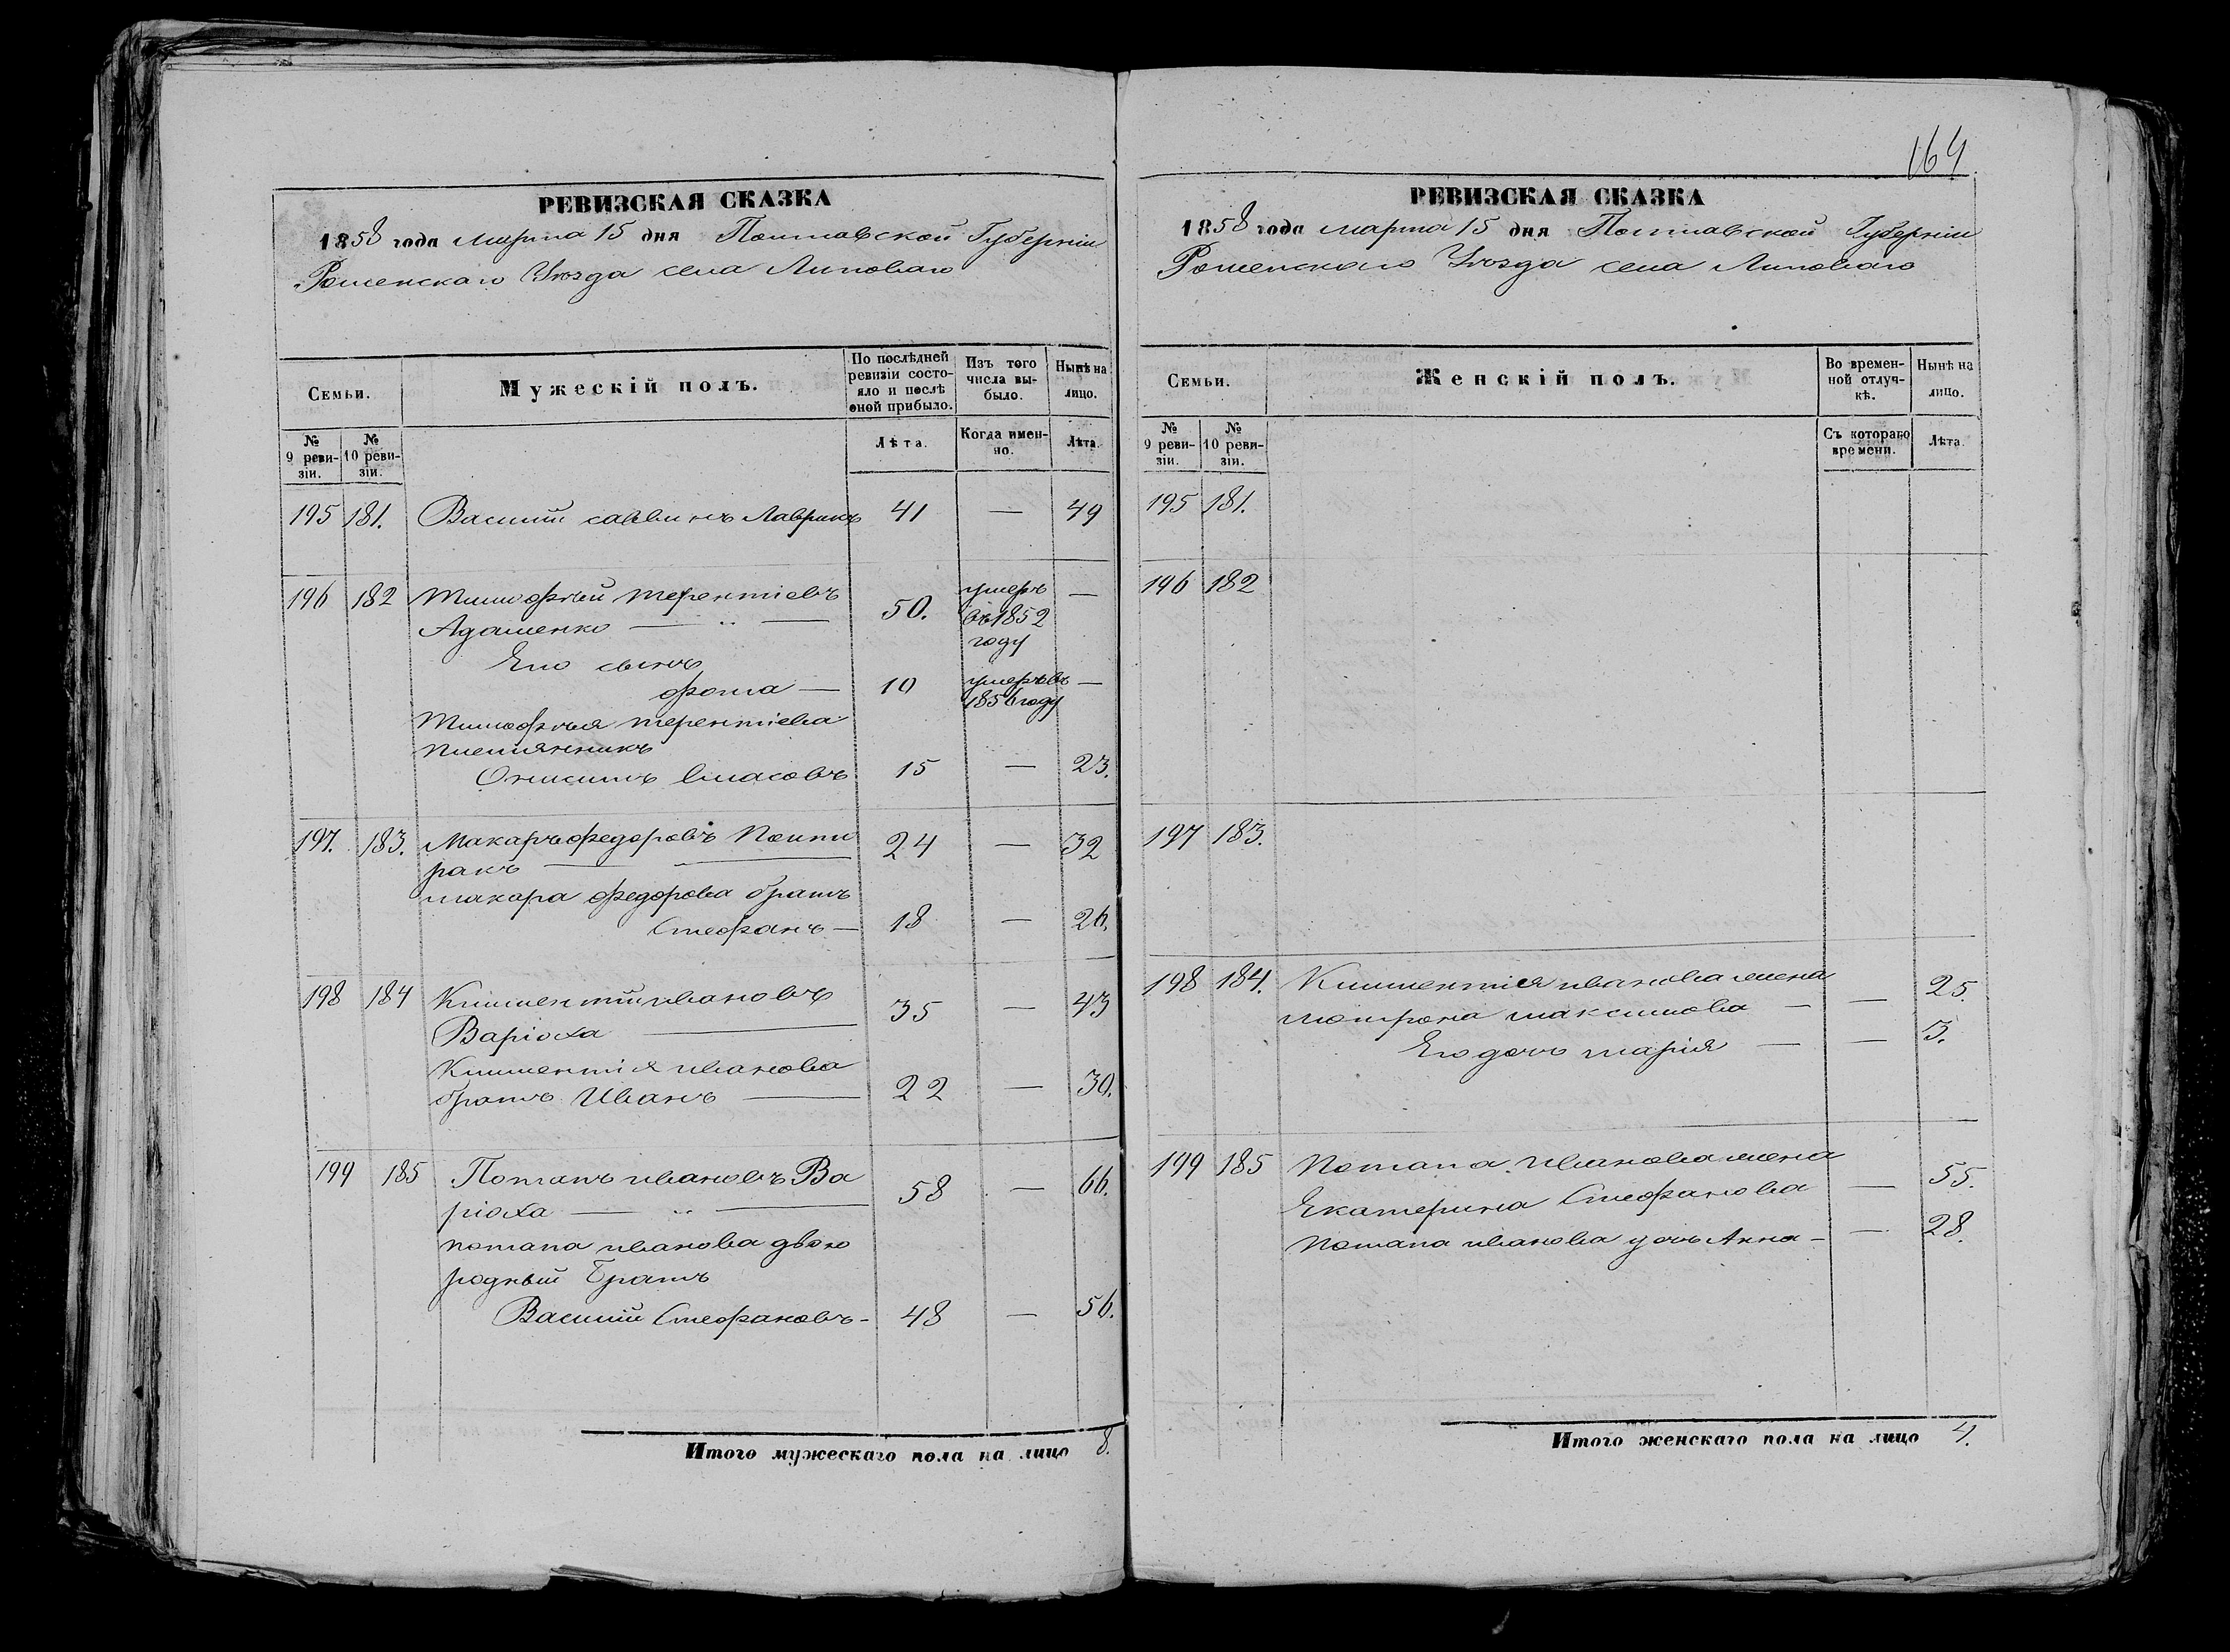 РЕВИЗСКАЯ СКАЗКА
1858 года марта 15 дня Полтавской Губерніи
Роменскаго Уѣзда села Липоваго
Семьи.
Мужескій полъ.
По послѣдней ревизіи состо-
яло и послѣ
оной прибыло.
Изъ того
числа вы-
было.
Нынѣ на
лицо.
№
9 реви-
зіи.
№
10 реви-
зіи.
Лѣта.
Когда имен-
но.
Лѣта.
195 181. Василій саввинъ Лаврикъ 41 — 49
196 182 Тимофѣй терентіевъ
Адаменко — „ — 50. умеръ въ 1852 году —
Его сынъ
фома — 10 умеръ въ 1856 году —
Тимофѣя терентіева
племянникъ
Онисимъ власовъ 15 — 23.
197. 183. Макаръ федоровъ Полти
ракъ — 24 — 32
макара федорова братъ
Стефанъ — 18 — 26.
198 184 Климентій ивановъ
Варіоха — 35 — 43
Климентія иванова
братъ Иванъ — 22 — 30.
199 185 Потапъ ивановъ Ва
ріоха — „ — 58 — 66.
потапа иванова двою
родный Братъ
Василій Стефановъ - 48 — 56.
Итого мужескаго пола на лицо 8.
164
РЕВИЗСКАЯ СКАЗКА
1858 года марта 15 дня Полтавской Губерніи
Роменскаго Уѣзда села Липоваго
Семьи.
Женскій полъ.
Во времен-
ной отлуч-
кѣ.
Нынѣ на
лицо.
№
9 реви-
зіи.
№
10 реви-
зіи.
Съ котораго
времени.
Лѣта.
195 181.
196 182
197 183.
198 184. Климентія иванова жена
мотрона максимова — — 25.
Его дочь марія — — 3.
199 185 Потапа иванова жена
Екатерина Стефанова — 55.
Потапа иванова дочь Анна — — 28.
Итого женскаго пола на лицо 4.